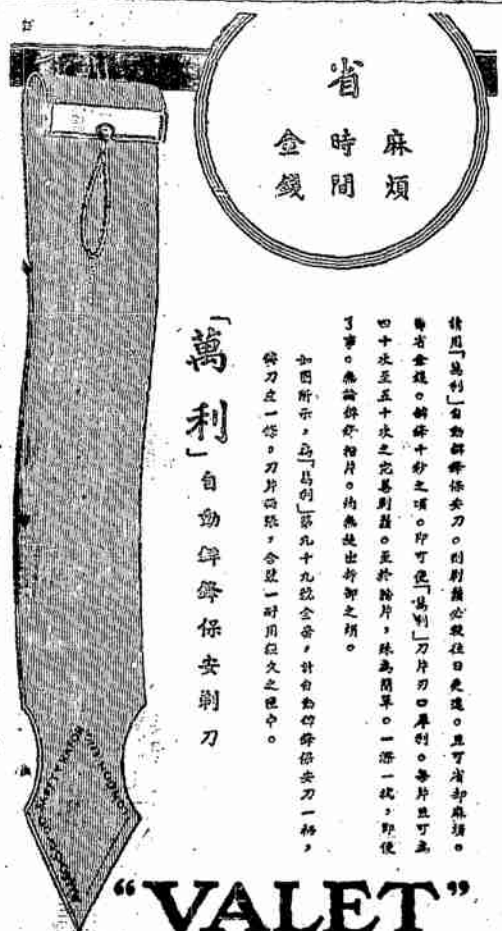 省
麻煩
時間
金錢
請用「萬利」自動鐴鋒保安刀。則剃鬚必較往日更速。且可省却麻煩。
節省金錢。鐴鋒十秒之頃。即可使「萬利」刀片刃口犀利。每片且可為
四十次至五十次之完善剃鬚。至於片，殊為簡單。一一拭，即便
了事。無論鐴鋒片。均無出拆卸之煩。
如圖所示，為「萬利」第九十九號全套，計自動鐴鋒保安刀一柄，
鐴刀皮一條。刀片張，合裝一耐用經久之匣中。
「萬利」自動鐴鋒保安剃刀
SAFETY RAZOR LONDON
“VALET”